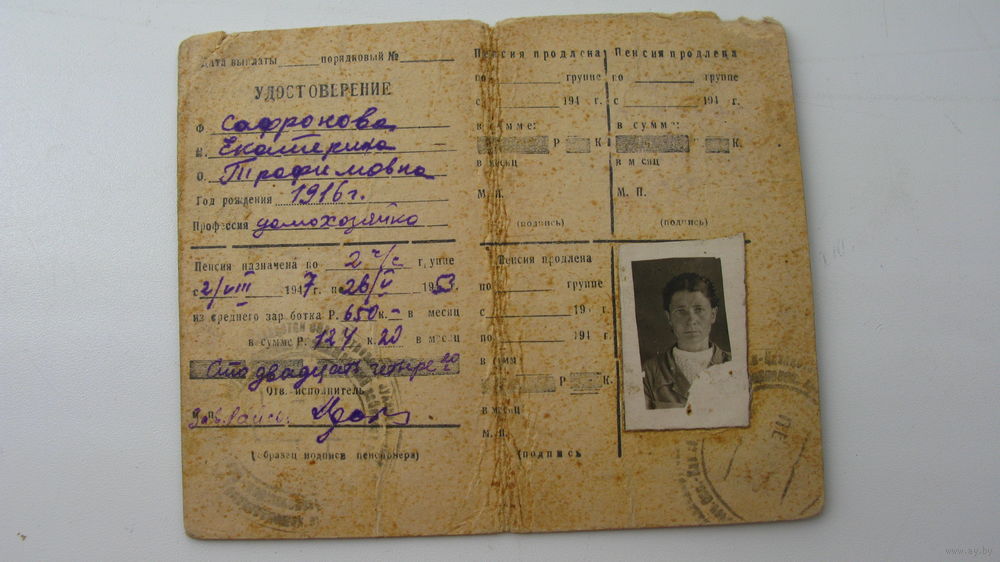 Дата выплаты порядковый №
УДОСТОВЕРЕНИЕ
Ф. Сафронова
И. Екатерина
О. Трофимовна
Год рождения 1916 г.
Профессия домохозяйка
Пенсия назначена по 2 ч/с группе
с 2/VIII 1947 г. по 26/V 1953.
из среднего заработка Р. 650 к. – в месяц
в сумме Р. 124 к. 20 в месяц
Сто двадцать четыре 20
Отв. исполнитель
(образец подписи пенсионера)
Пенсия продлена
по группе
с 194 г.
в сумме:
Р К
в месяц
М. П.
(подпись)
Пенсия продлена
по группе
с 194 г.
в сумме:
Г К.
в месяц
М. П.
(подпись)
Пенсия продлена
по группе
с 19 г.
по 194 г.
в сумме
Р К.
в месяц
М. П.
(подпись
www.ay.by